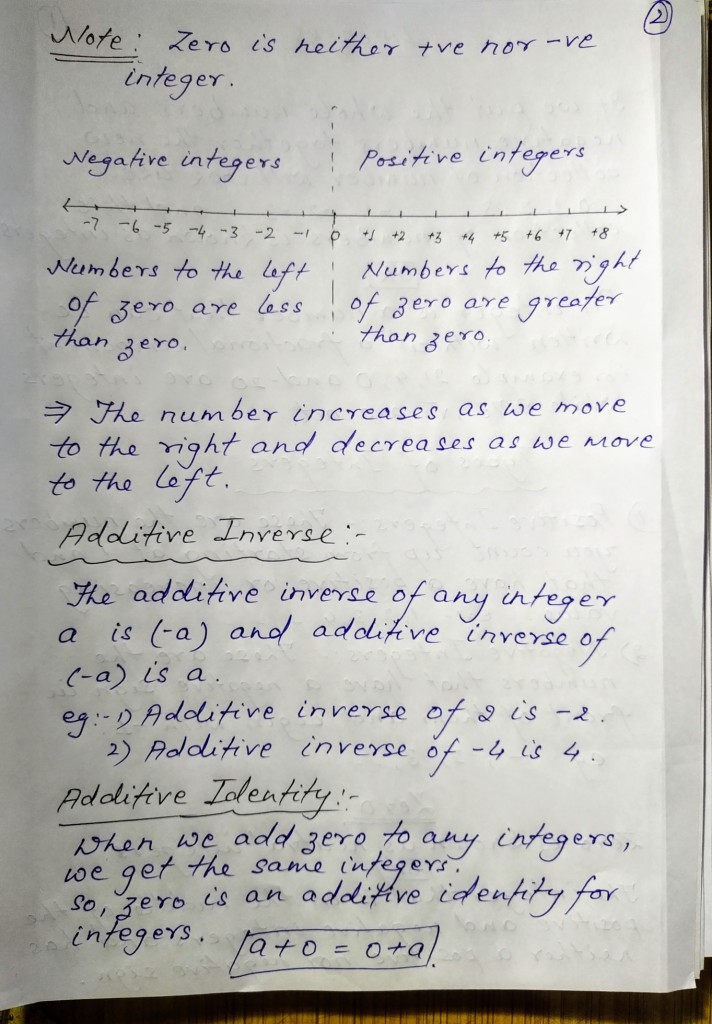 2
Note : Zero is neither +ve nor -ve
integer.
Negative integers
Positive integers
-7 -6 -5 -4 -3 -2 -1 0 +1 +2 +3 +4 +5 +6 +7 +8
Numbers to the left
of zero are less
than zero.
Numbers to the right
of zero are greater
than zero.
⇒ The number increases as we move
to the right and decreases as we move
to the left.
Additive Inverse :-
The additive inverse of any integer
a is (-a) and additive inverse of
(-a) is a.
eg:- 1) Additive inverse of 2 is -2.
2) Additive inverse of -4 is 4.
Additive Identity :-
When we add zero to any integers,
we get the same integers.
So, zero is an additive identity for
integers. a+0 = 0+a.